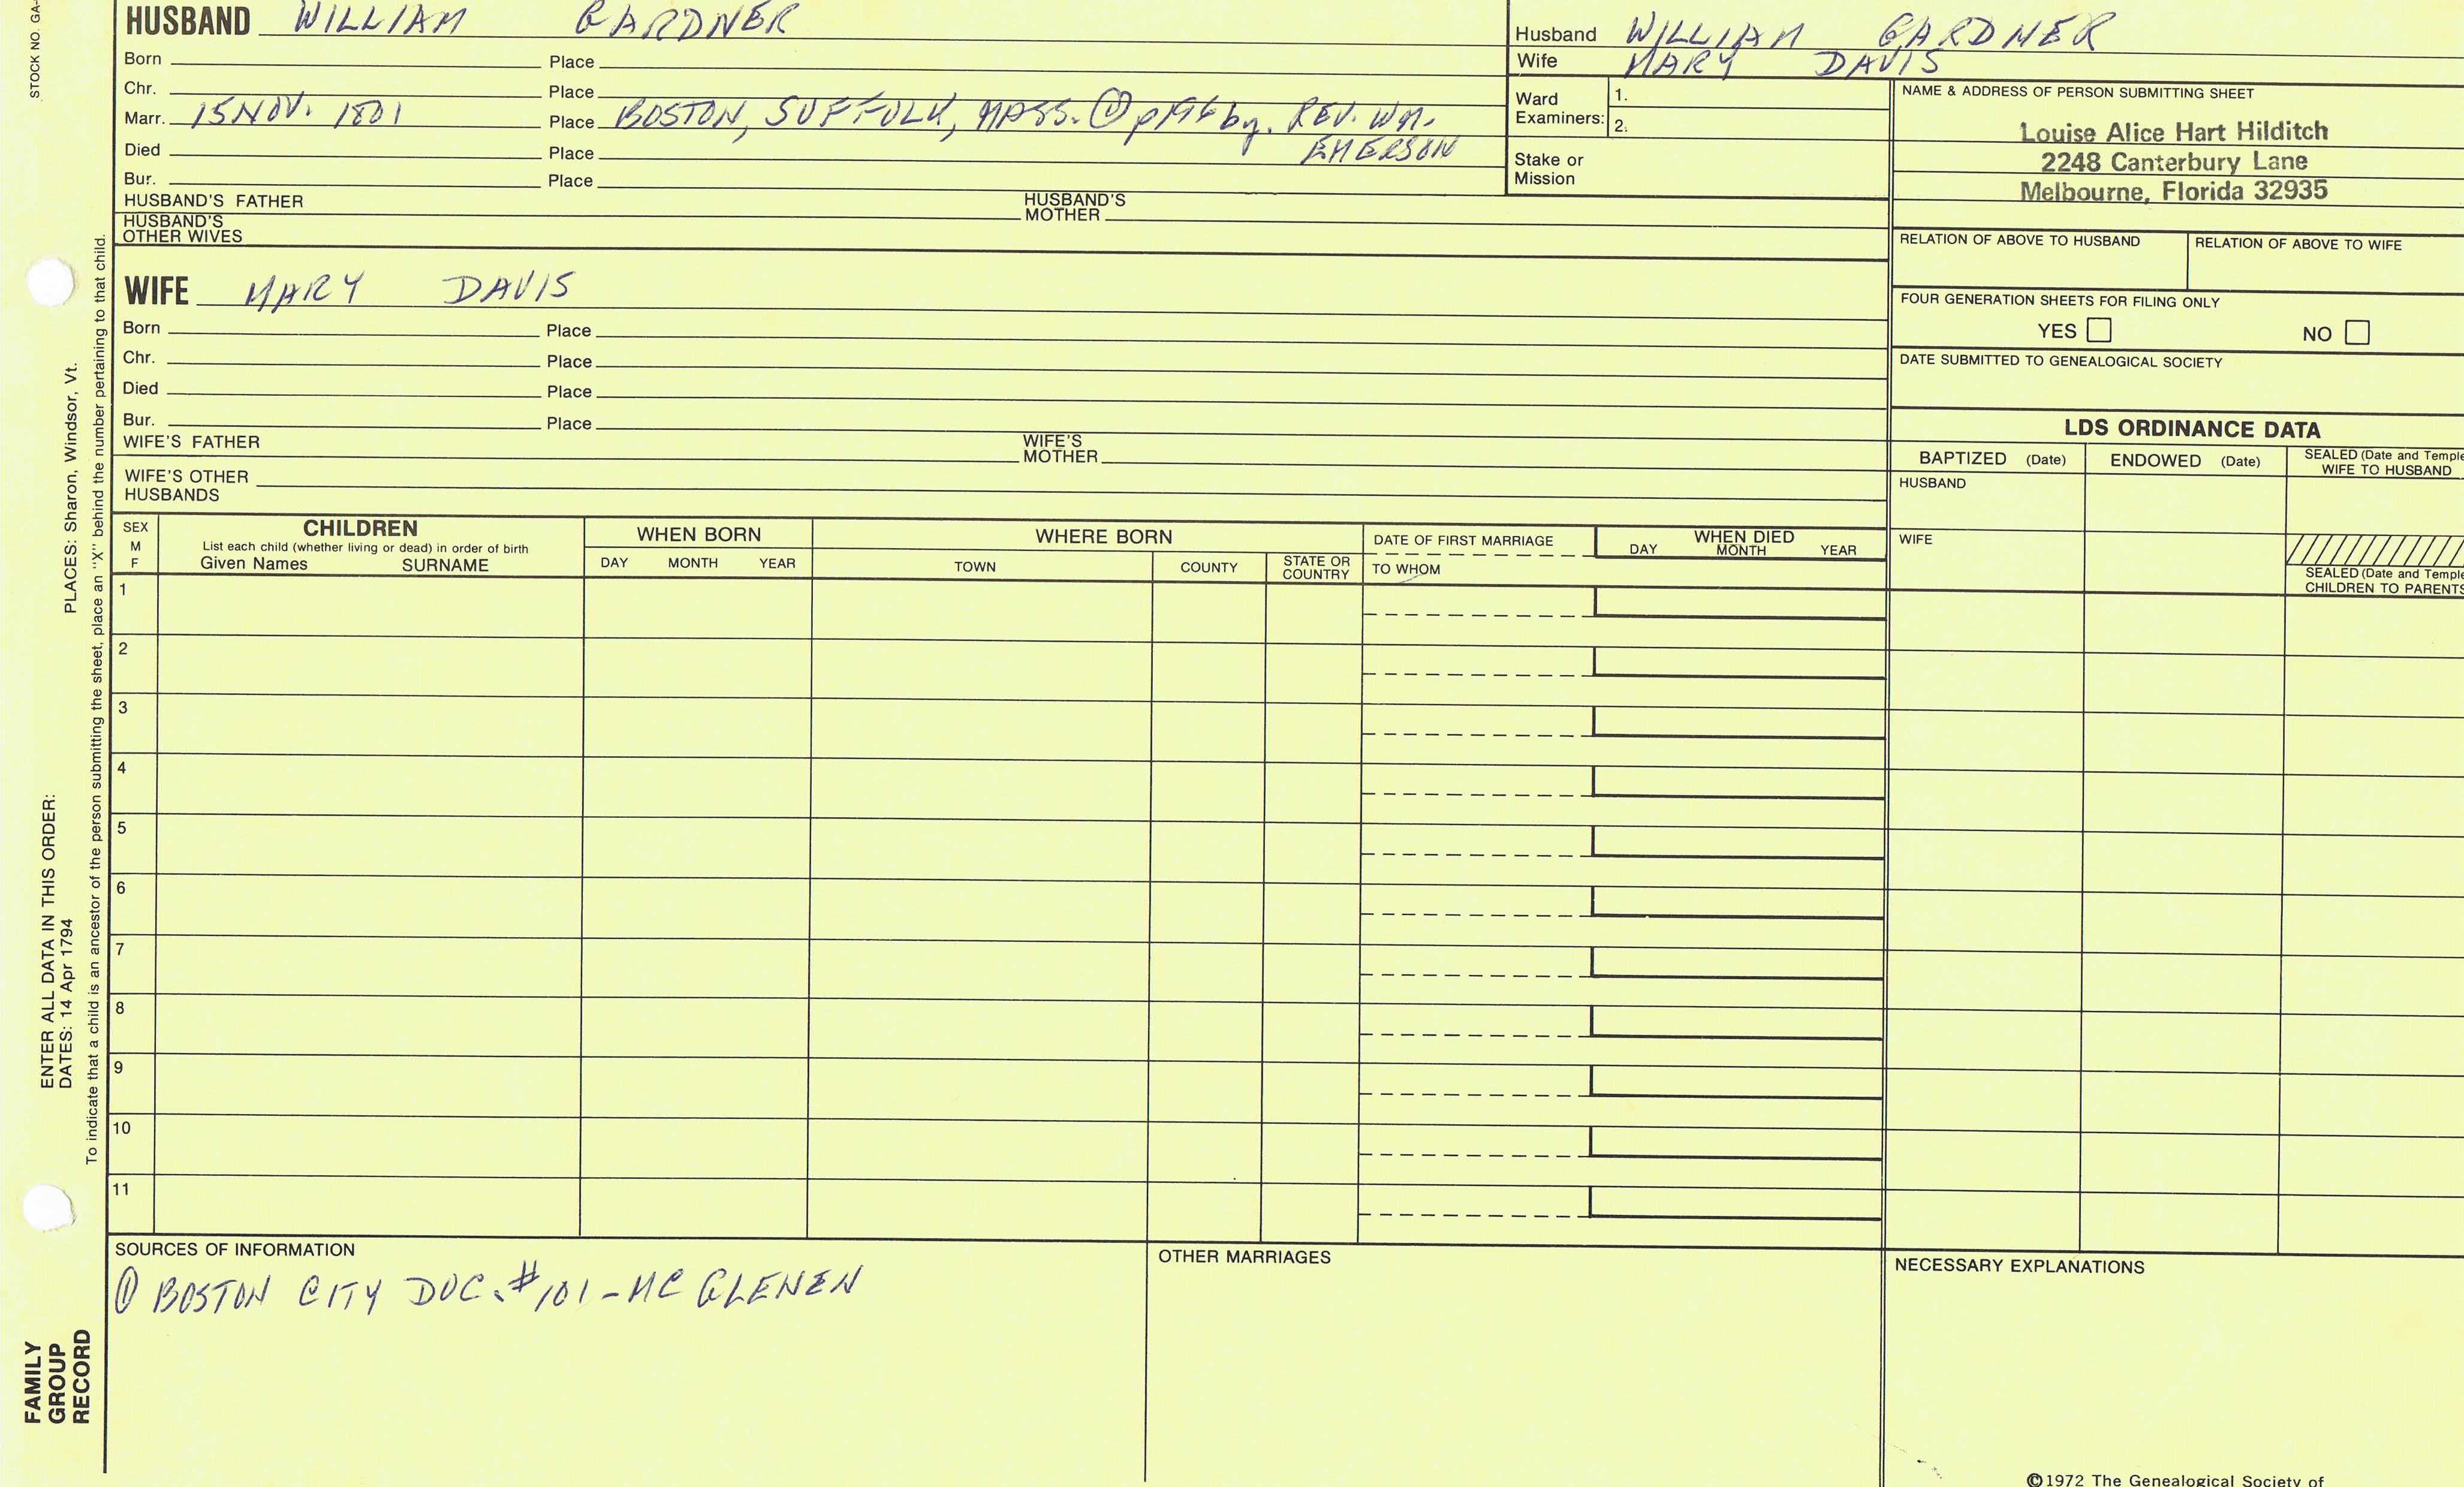 STOCK NO. GA-
HUSBAND WILLIAM GARDNER
Born Place
Chr. Place
Marr. 15 NOV. 1801 Place BOSTON, SUFFOLK, MASS. ① by. REV. WM.
EMERSON
Died Place
Bur. Place
HUSBAND'S FATHER HUSBAND'S MOTHER
HUSBAND'S
OTHER WIVES
Husband WILLIAM GARDNER
Wife MARY DAVIS
Ward
Examiners:
1.
2.
Stake or
Mission
NAME & ADDRESS OF PERSON SUBMITTING SHEET
Louise Alice Hart Hilditch
2248 Canterbury Lane
Melbourne, Florida 32935
RELATION OF ABOVE TO HUSBAND RELATION OF ABOVE TO WIFE
FOUR GENERATION SHEETS FOR FILING ONLY
YES NO
DATE SUBMITTED TO GENEALOGICAL SOCIETY
WIFE MARY DAVIS
Born Place
Chr. Place
Died Place
Bur. Place
WIFE'S FATHER WIFE'S MOTHER
WIFE'S OTHER
HUSBANDS
LDS ORDINANCE DATA
BAPTIZED (Date) ENDOWED (Date) SEALED (Date and Temple
WIFE TO HUSBAND
HUSBAND
WIFE
SEALED (Date and Temple
CHILDREN TO PARENTS
SEX
M
F
CHILDREN
List each child (whether living or dead) in order of birth
Given Names SURNAME
WHEN BORN
DAY MONTH YEAR
WHERE BORN
TOWN COUNTY STATE OR COUNTRY
DATE OF FIRST MARRIAGE
TO WHOM
WHEN DIED
DAY MONTH YEAR
1
2
3
4
5
6
7
8
9
10
11
SOURCES OF INFORMATION
① BOSTON CITY DOC. #101 - MC GLENEN
OTHER MARRIAGES
NECESSARY EXPLANATIONS
©1972 The Genealogical Society of
FAMILY
GROUP
RECORD
ENTER ALL DATA IN THIS ORDER:
DATES: 14 Apr 1794 PLACES: Sharon, Windsor, Vt.
To indicate that a child is an ancestor of the person submitting the sheet, place an "X" behind the number pertaining to that child.